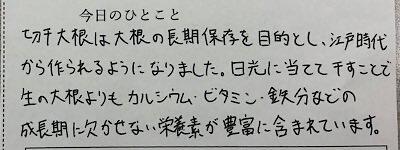 今日のひとこと
切干大根は大根の長期保存を目的とし、江戸時代
から作られるようになりました。日光に当てて干すことで
生の大根よりもカルシウム・ビタミン・鉄分などの
成長期に欠かせない栄養素が豊富に含まれています。